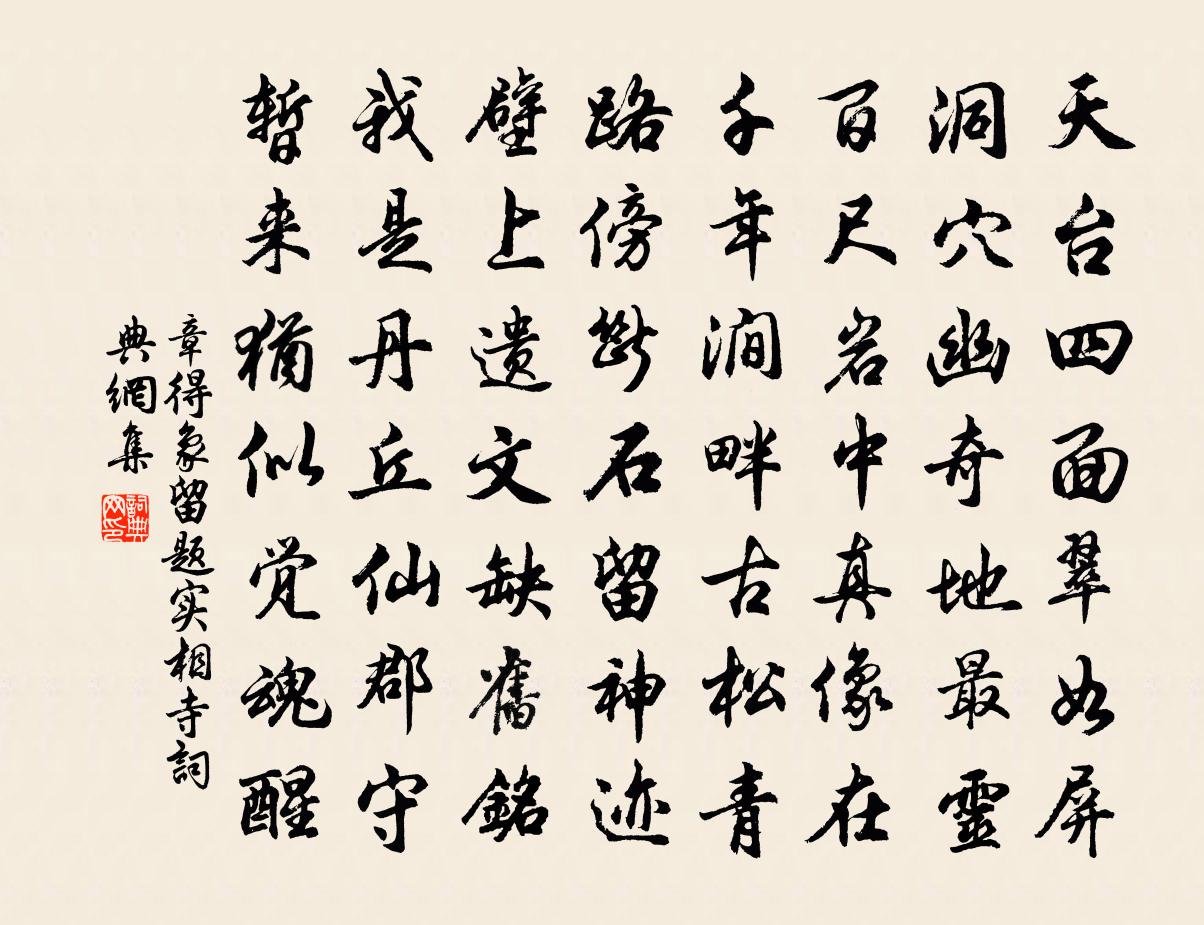 天台四面翠如屏
洞穴幽奇地最靈
百尺岩中真像在
千年澗畔古松青
路傍斷石留神迹
壁上遺文缺舊銘
我是丹丘仙郡守
暫来猶似覺魂醒
章得象留題实相寺詞
典網集
詞典
网印